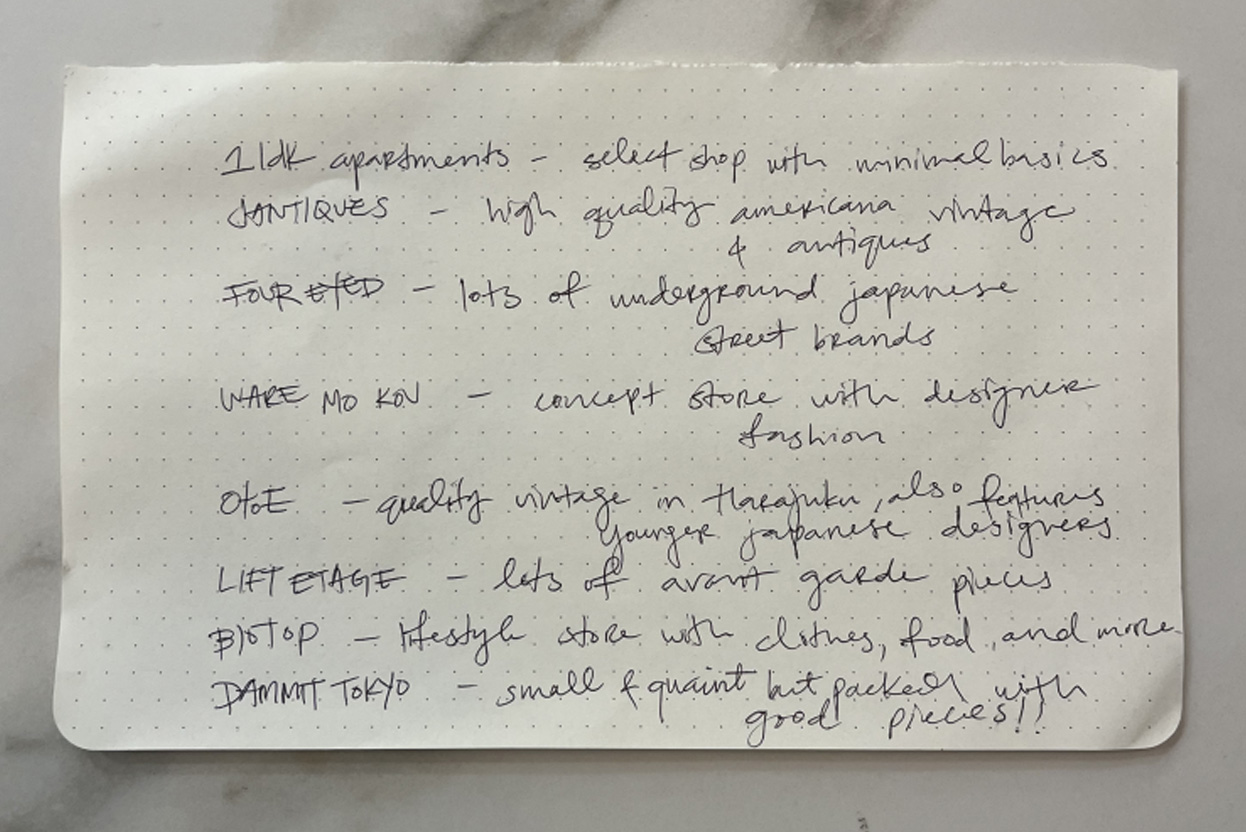 1ldk apartments - select shop with minimal basics
JANTIQUES - high quality americana vintage
& antiques
FOUR EYED - lots of underground japanese
street brands
WARE MO KOU - concept store with designer
fashion
OtOE - quality vintage in Harajuku, also features
younger japanese designers
LIFT ETAGE - lots of avant garde pieces
BIOTOP - lifestyle store with clothes, food, and more.
DAMMIT TOKYO - small & quaint but packed with
good pieces!!